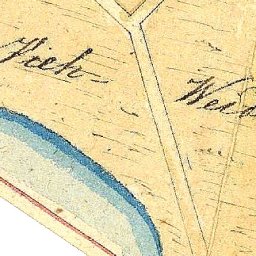 Vieh-
Weid